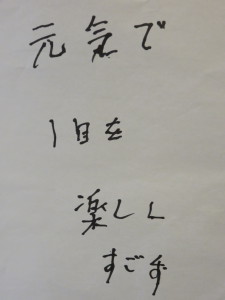 元気で
1日を
楽しく
すごす